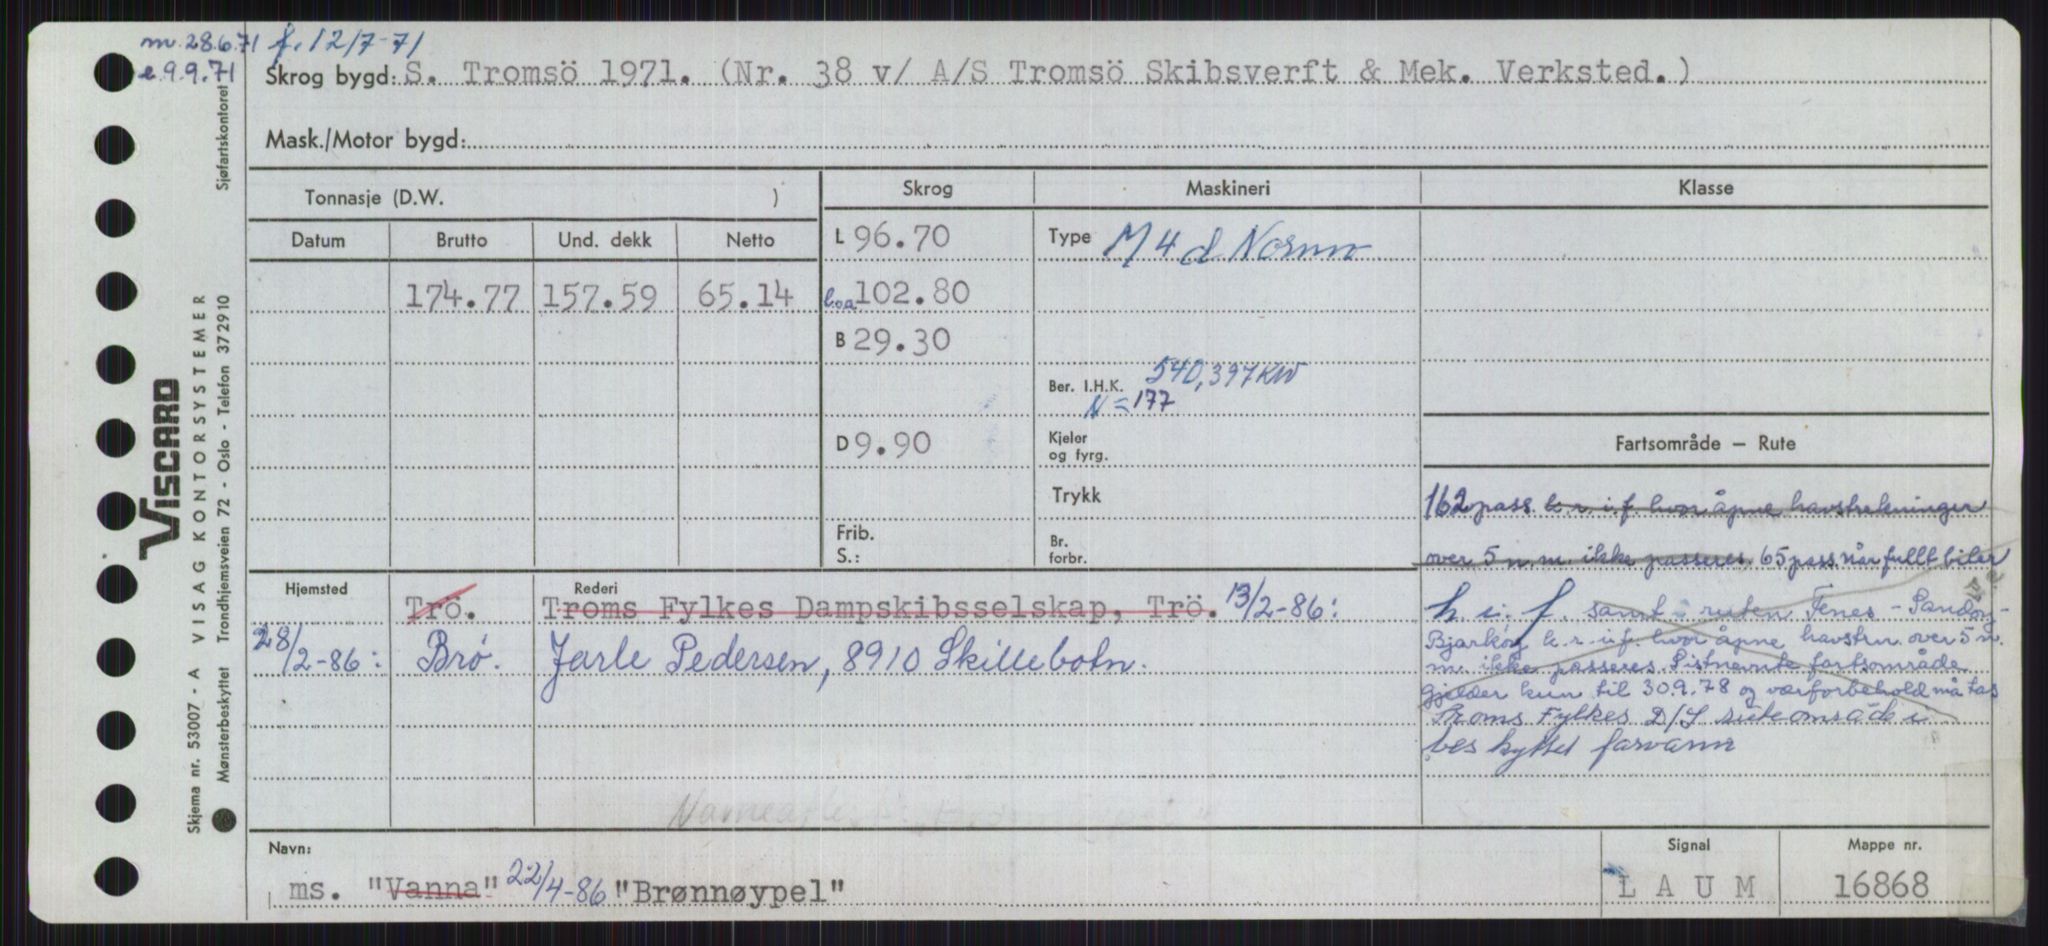 m. 28.6.71 f. 12/7-71
e. 9.9.71
Skrog bygd: S. Tromsö 1971. (Nr. 38 v/ A/S Tromsö Skibsverft & Mek. Verksted.)
Mask./Motor bygd:
Tonnasje (D.W. )
Skrog
Maskineri
Klasse
Datum Brutto Und. dekk Netto
174.77 157.59 65.14
L 96.70
loa 102.80
B 29.30
D 9.90
Frib.
S.:
Type M 4 d Normo
Ber. I.H.K. 540, 397 KW
N = 177
Kjeler
og fyrg.
Trykk
Br.
forbr.
Fartsområde — Rute
162 pass k.r.i.f. hvor åpne havstrekninger
over 5 n.m. ikke passeres, 65 pass når fullt biler
h. i. f. samt ruten Fenes - Sandøy -
Bjarkøy k.r.i.f. hvor åpne havstr. over 5 n.
m. ikke passeres. Sistnevnte fartsområde
gjelder kun til 30.9.78 og værforbehold må tas
Troms Fylkes D/S ruteområde i
beskyttet farvann
Hjemsted Rederi
Trö. Troms Fylkes Dampskibsselskap, Trö. 13/2-86:
28/2-86: Brø. Jarle Pedersen, 8910 Skillebotn.
Navn:
ms. "Vanna" 22/4-86 "Brønnøypel"
Signal
L A U M
Mappe nr.
16868
VISCARD
Skjema nr. 53007 - A VISAG KONTORSYSTEMER
Mønsterbeskyttet Trondhjemsveien 72 - Oslo - Telefon 37 29 10
Sjøfartskontoret